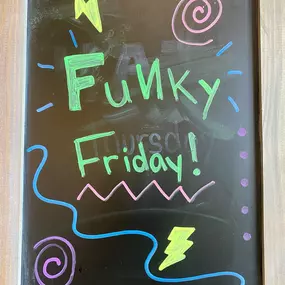 Funky
Friday!